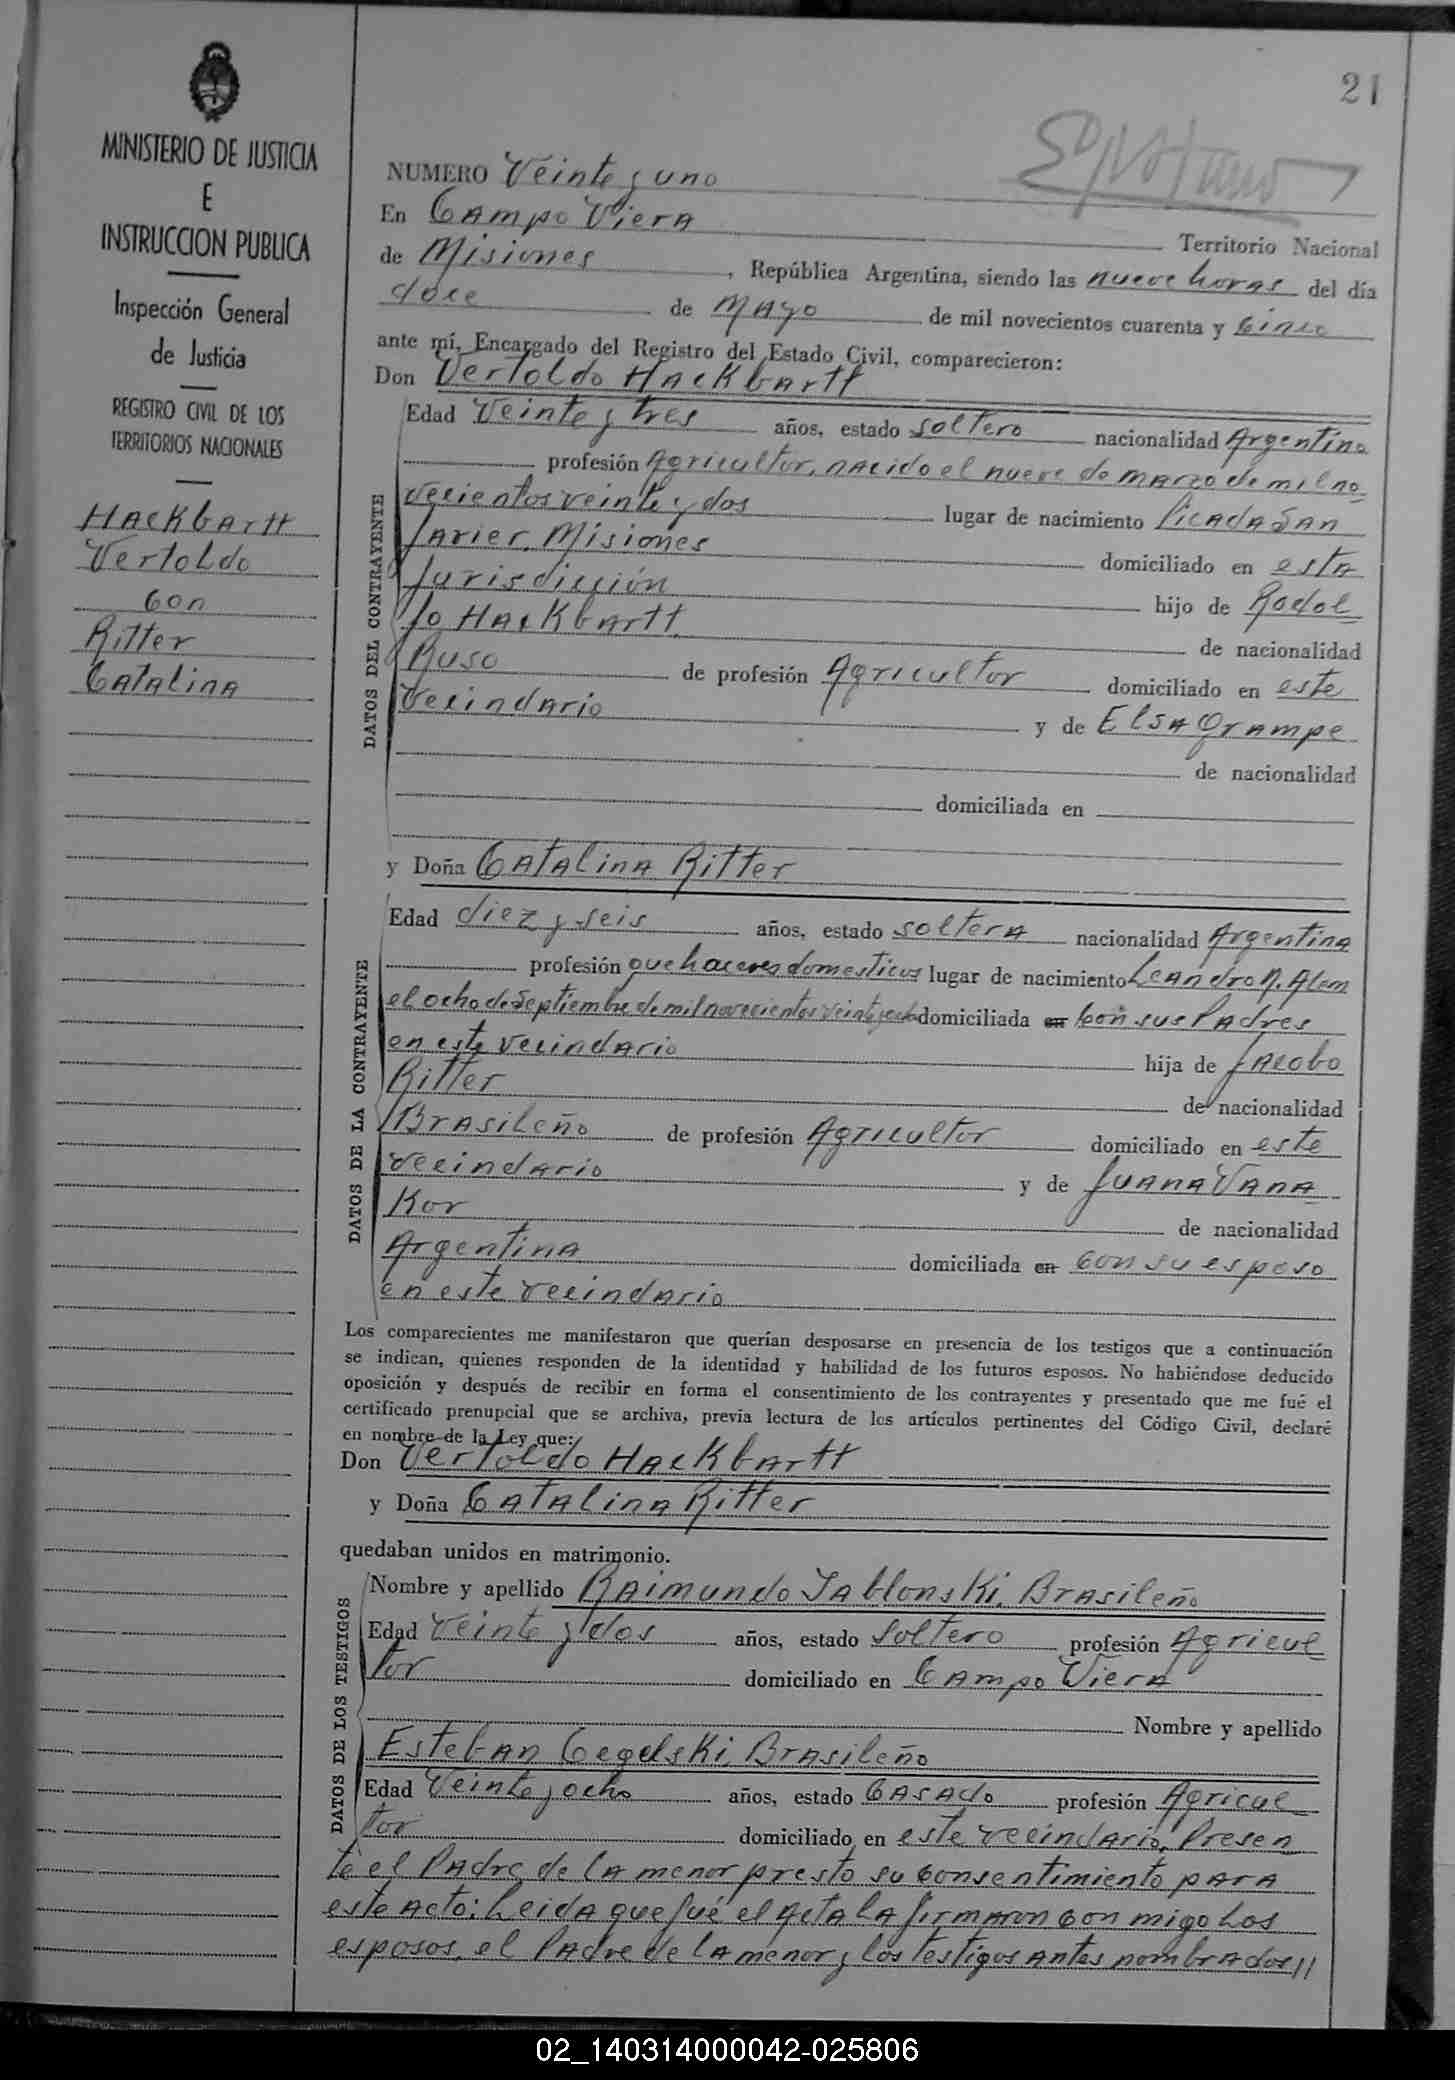 21
MINISTERIO DE JUSTICIA
E
INSTRUCCION PUBLICA
Inspección General
de Justicia
REGISTRO CIVIL DE LOS
TERRITORIOS NACIONALES
Hackbartt
Vertoldo
con
Ritter
Catalina
NUMERO Veinte y uno
En Campo Viera Territorio Nacional
de Misiones, República Argentina, siendo las nueve horas del día
doce de Mayo de mil novecientos cuarenta y cinco
ante mí, Encargado del Registro del Estado Civil, comparecieron:
Don Vertoldo Hackbartt
DATOS DEL CONTRAYENTE
Edad Veinte y tres años, estado soltero nacionalidad Argentino
profesión Agricultor, nacido el nueve de marzo de mil no
vecientos veinte y dos lugar de nacimiento Picada San
Javier, Misiones domiciliado en esta
Jurisdicción hijo de Rodol
fo Hackbartt de nacionalidad
Ruso de profesión Agricultor domiciliado en este
Vecindario y de Elsa Grampe
de nacionalidad
domiciliada en
y Doña Catalina Ritter
DATOS DE LA CONTRAYENTE
Edad diez y seis años, estado soltera nacionalidad Argentina
profesión quehaceres domesticos lugar de nacimiento Leandro N. Alem
el ocho de Septiembre de mil novecientos veinte y ocho domiciliada en con sus Padres
en este vecindario hija de Jacobo
Ritter de nacionalidad
Brasileño de profesión Agricultor domiciliado en este
vecindario y de Juana Vana
Kor de nacionalidad
Argentina domiciliada en con su esposo
en este vecindario
Los comparecientes me manifestaron que querían desposarse en presencia de los testigos que a continuación
se indican, quienes responden de la identidad y habilidad de los futuros esposos. No habiéndose deducido
oposición y después de recibir en forma el consentimiento de los contrayentes y presentado que me fué el
certificado prenupcial que se archiva, previa lectura de los artículos pertinentes del Código Civil, declaré
en nombre de la Ley que:
Don Vertoldo Hackbartt
y Doña Catalina Ritter
quedaban unidos en matrimonio.
DATOS DE LOS TESTIGOS
Nombre y apellido Raimundo Jablonski, Brasileño
Edad Veinte y dos años, estado Soltero profesión Agricul
tor domiciliado en Campo Viera
Nombre y apellido
Esteban Cegelski, Brasileño
Edad Veinte y ocho años, estado Casado profesión Agricul
tor domiciliado en este vecindario, Presen
te el Padre de la menor presto su consentimiento para
este Acto: Leida que fué el Acta la firmaron con migo Los
esposos, el Padre de la menor y los testigos antes nombrados//
02_140314000042-025806